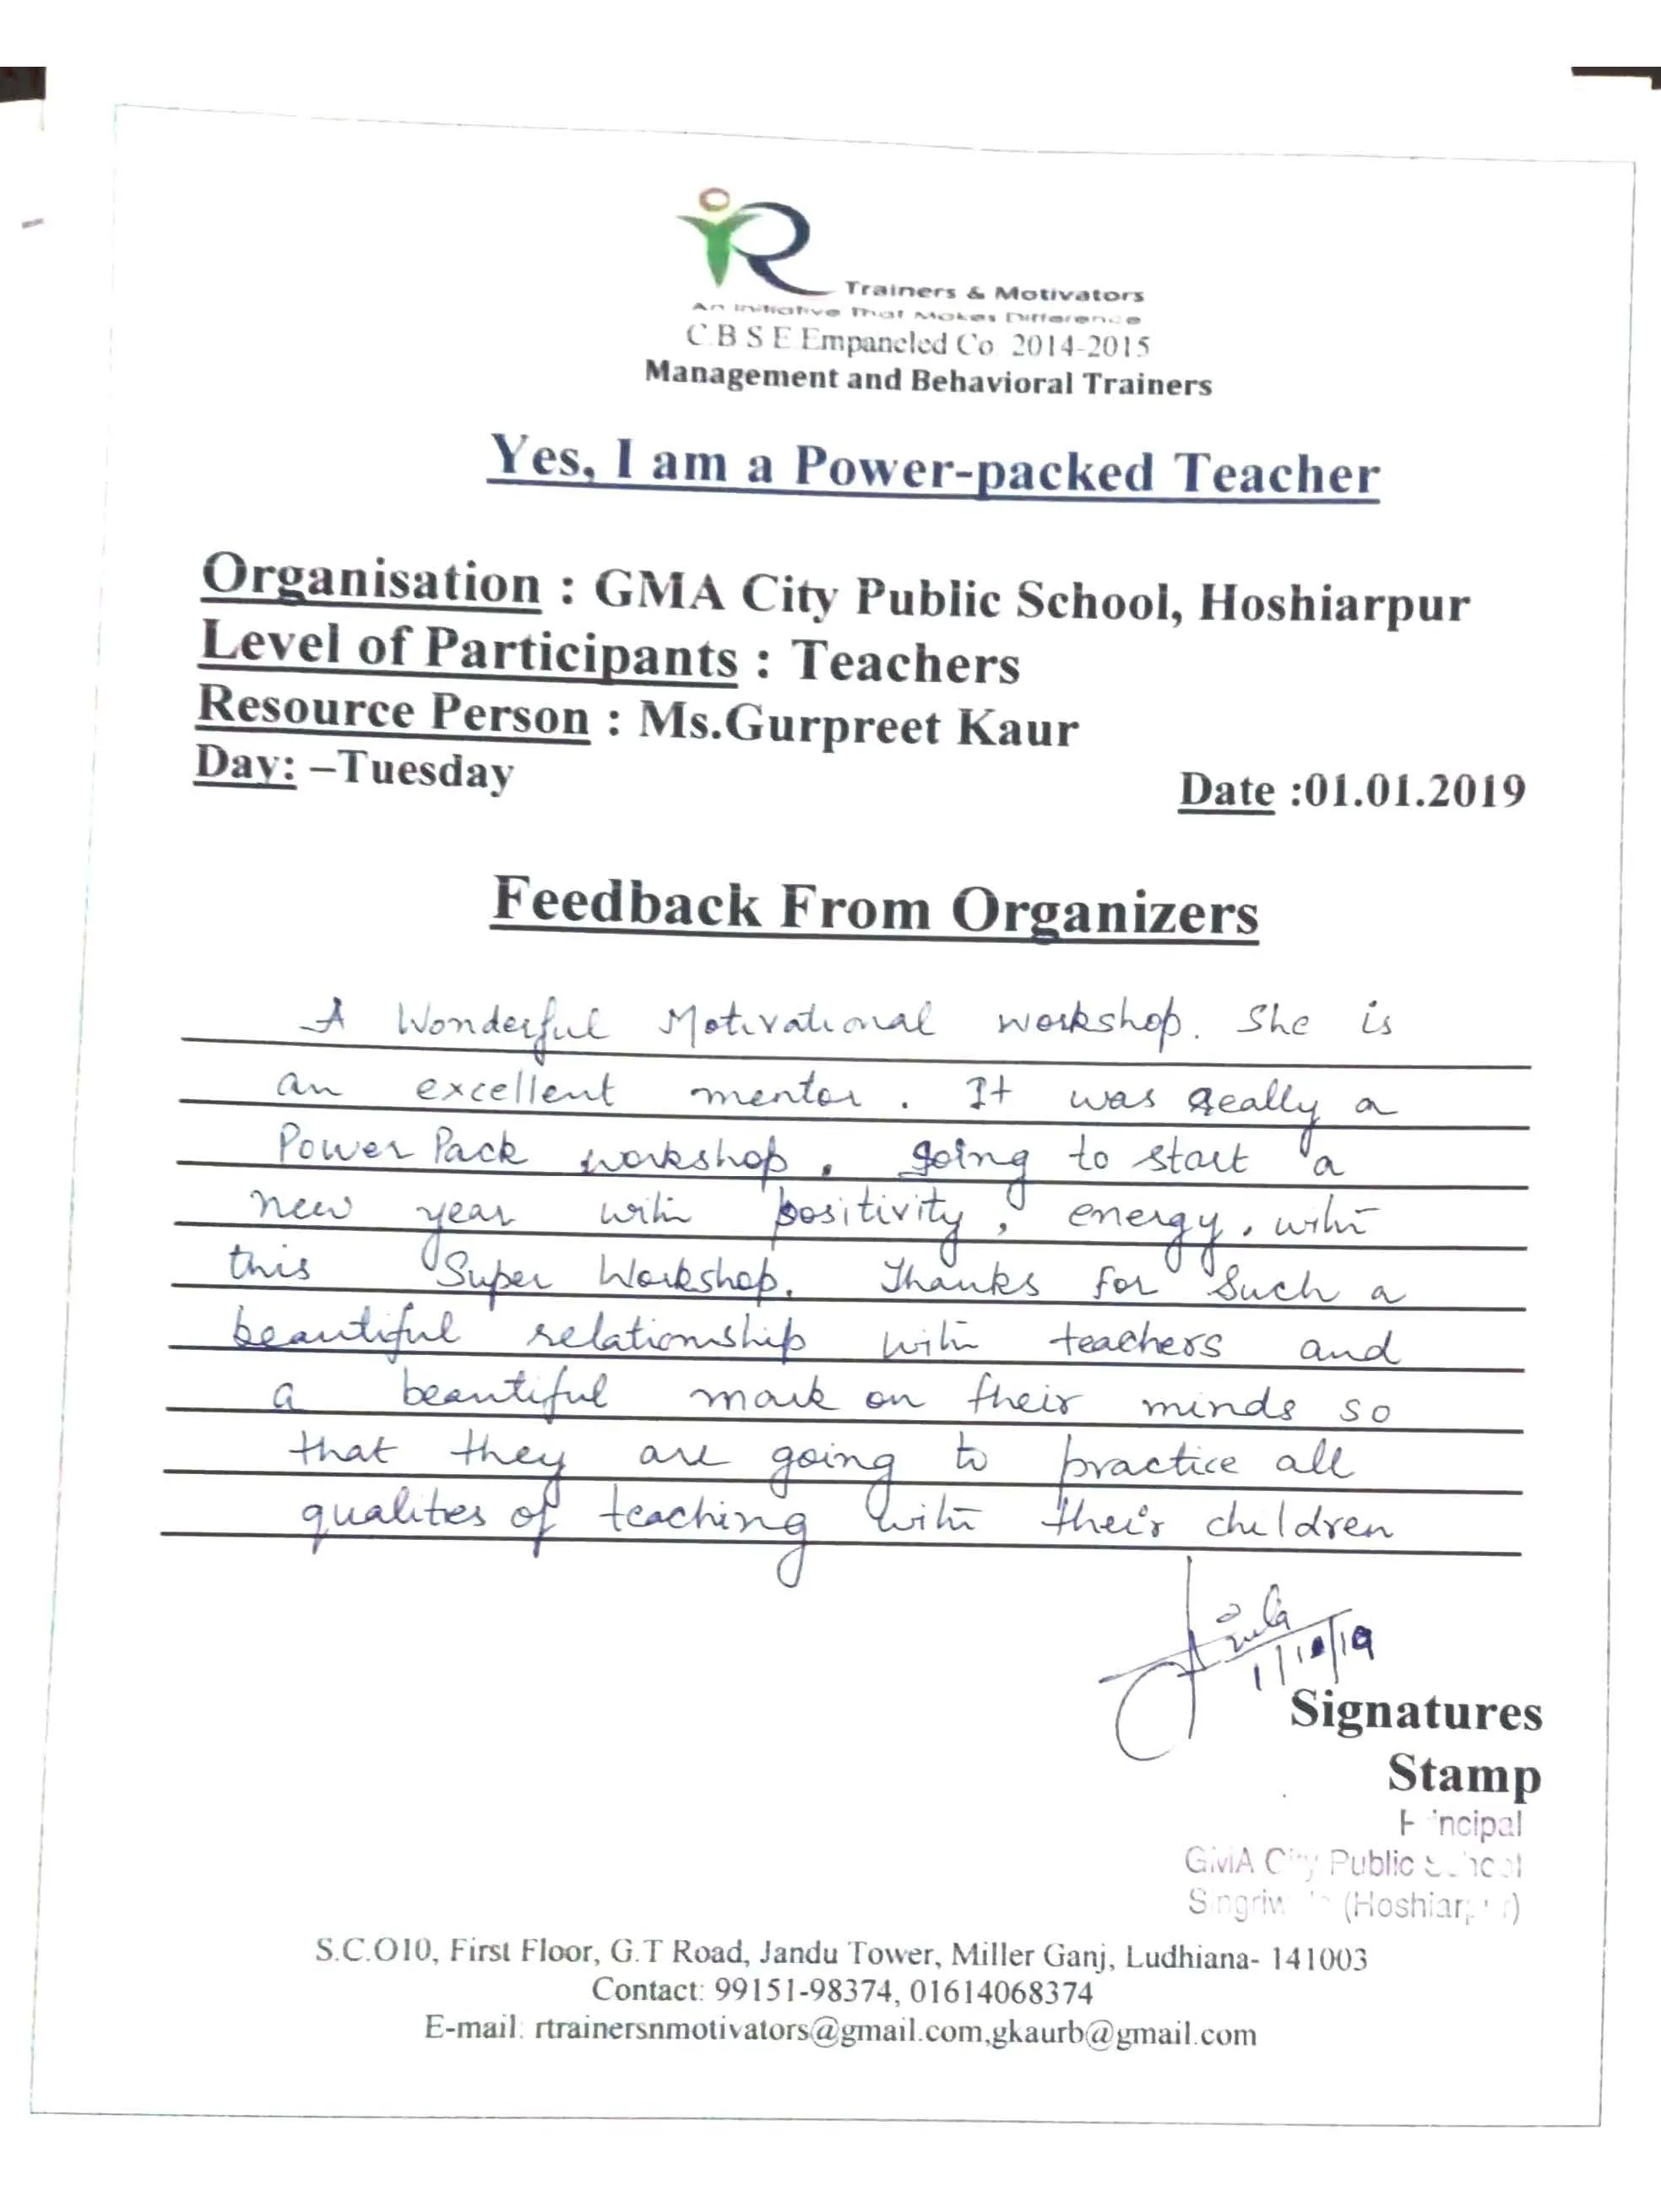 Trainers & Motivators
An Initiative That Makes Difference
C.B.S.E Empaneled Co. 2014-2015
Management and Behavioral Trainers
Yes, I am a Power-packed Teacher
Organisation : GMA City Public School, Hoshiarpur
Level of Participants : Teachers
Resource Person : Ms.Gurpreet Kaur
Day: –Tuesday
Date :01.01.2019
Feedback From Organizers
A Wonderful Motivational workshop. She is
an excellent mentor. It was really a
Power Pack workshop, going to start a
new year with positivity, energy, with
this Super Workshop. Thanks for such a
beautiful relationship with teachers and
a beautiful mark on their minds so
that they are going to practice all
qualities of teaching with their children
Signatures
Stamp
Principal
GMA City Public School
(Hoshiarpur)
S.C.O10, First Floor, G.T Road, Jandu Tower, Miller Ganj, Ludhiana- 141003
Contact: 99151-98374, 01614068374
E-mail: rtrainersnmotivators@gmail.com,gkaurb@gmail.com